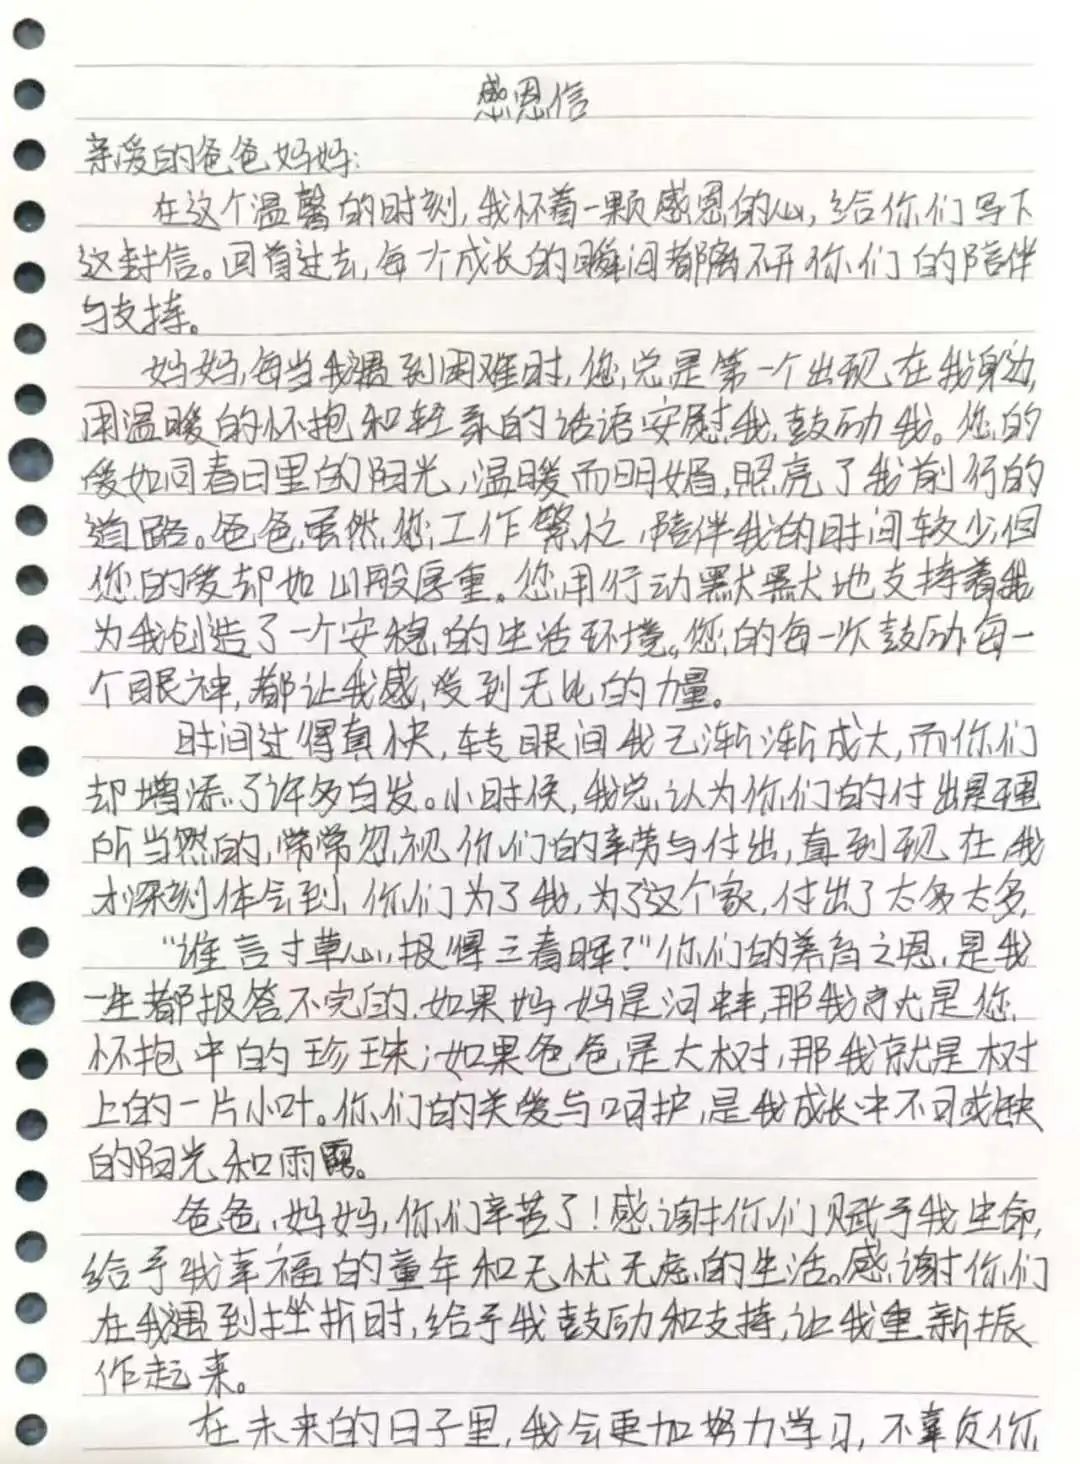 感恩信
亲爱的爸爸妈妈:
在这个温馨的时刻,我怀着一颗感恩的心,给你们写下
这封信。回首过去,每个成长的瞬间都离不开你们的陪伴
与支持。
妈妈,每当我遇到困难时,您总是第一个出现在我身边,
用温暖的怀抱和轻柔的话语安慰我,鼓励我。您的
爱如同春日里的阳光,温暖而明媚,照亮了我前行的
道路。爸爸,虽然您工作繁忙,陪伴我的时间较少,但
您的爱却如山般厚重。您用行动默默地支持着我
为我创造了一个安稳的生活环境。您的每一次鼓励,每一
个眼神,都让我感受到无比的力量。
时间过得真快,转眼间我已渐渐成大,而你们
却增添了许多白发。小时候,我总认为你们的付出是理
所当然的,常常忽视你们的辛劳与付出,直到现在,我
才深刻体会到,你们为了我,为了这个家,付出了太多太多,
“谁言寸草心,报得三春晖?”你们的养育之恩,是我
一生都报答不完的.如果妈妈是河蚌,那我就是您
怀抱中的珍珠;如果爸爸是大树,那我就是树
上的一片小叶。你们的关爱与呵护,是我成长中不可或缺
的阳光和雨露。
爸爸,妈妈,你们辛苦了!感谢你们赋予我生命,
给予我幸福的童年和无忧无虑的生活。感谢你们
在我遇到挫折时,给予我鼓励和支持,让我重新振
作起来。
在未来的日子里,我会更加努力学习,不辜负你